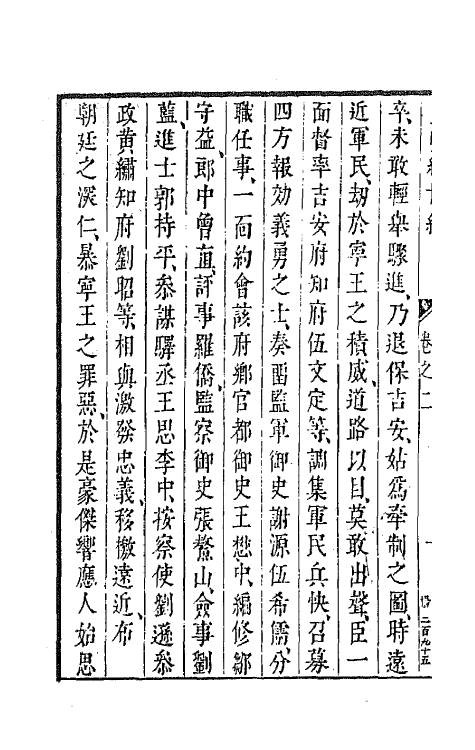 卷之二
二百九十五
卒、未敢輕舉驟進、乃退保吉安、姑爲牽制之圖、時遠
近軍民、刼於寧王之積威、道路以目、莫敢出聲、臣一
面督率吉安府知府伍文定等、調集軍民兵快、召募
四方報効義勇之士、奏畱監軍御史謝源伍希儒、分
職任事、一面約會該府鄉官都御史王懋中、編修鄒
守益、郎中曾直、評事羅僑、監察御史張鰲山、僉事劉
藍、進士郭持平、叅謀驛丞王思李中、按察使劉遜叅
政黃繡知府劉昭等、相與激發忠義、移檄遠近、布
朝廷之深仁、暴寧王之罪惡、於是豪傑響應人始思